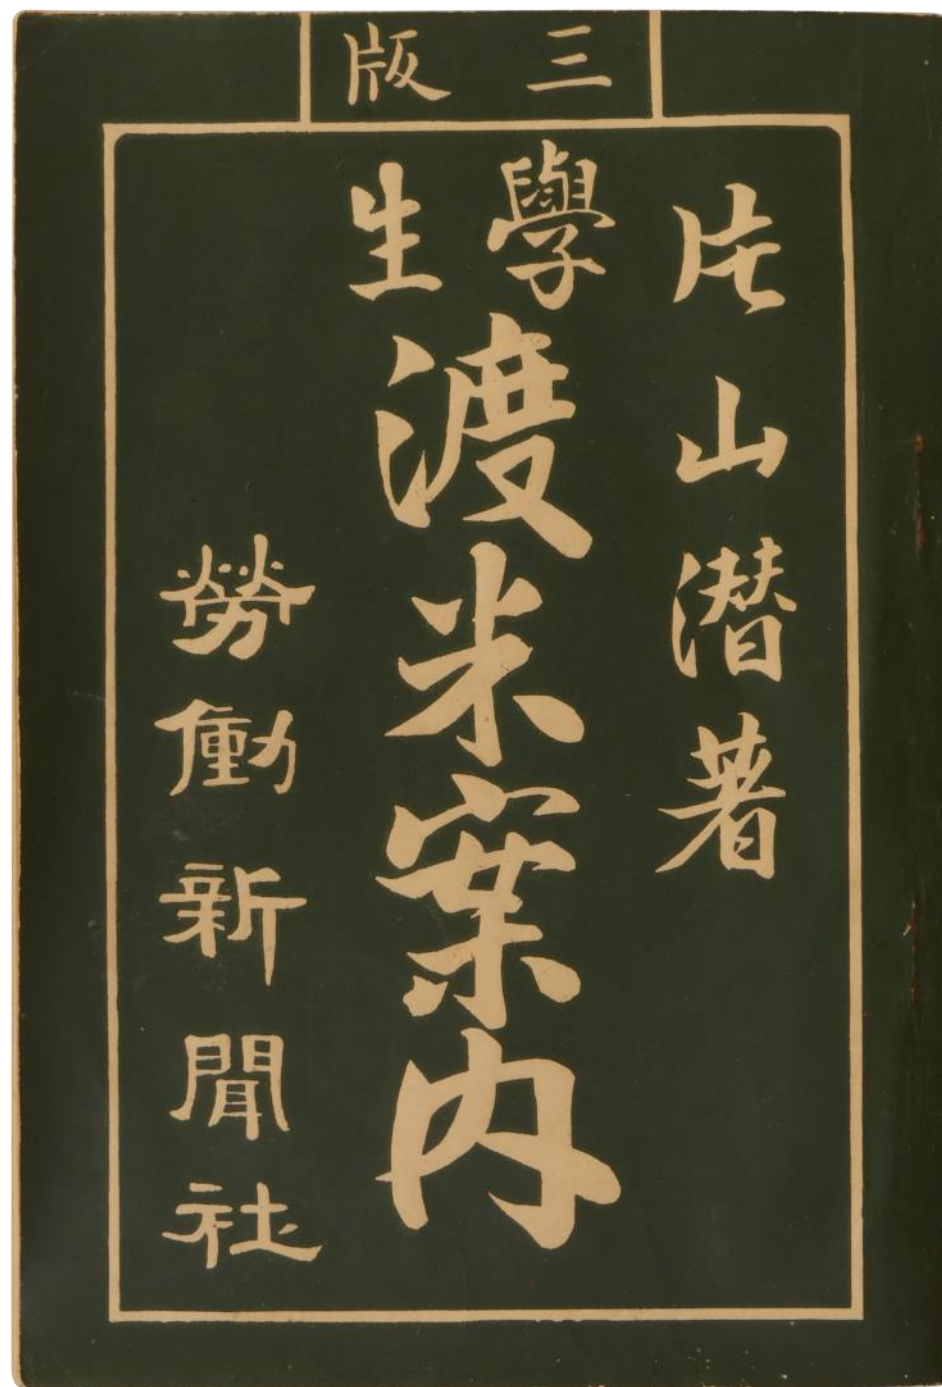 三版
片山潜著
學生
渡米案内
勞働新聞社